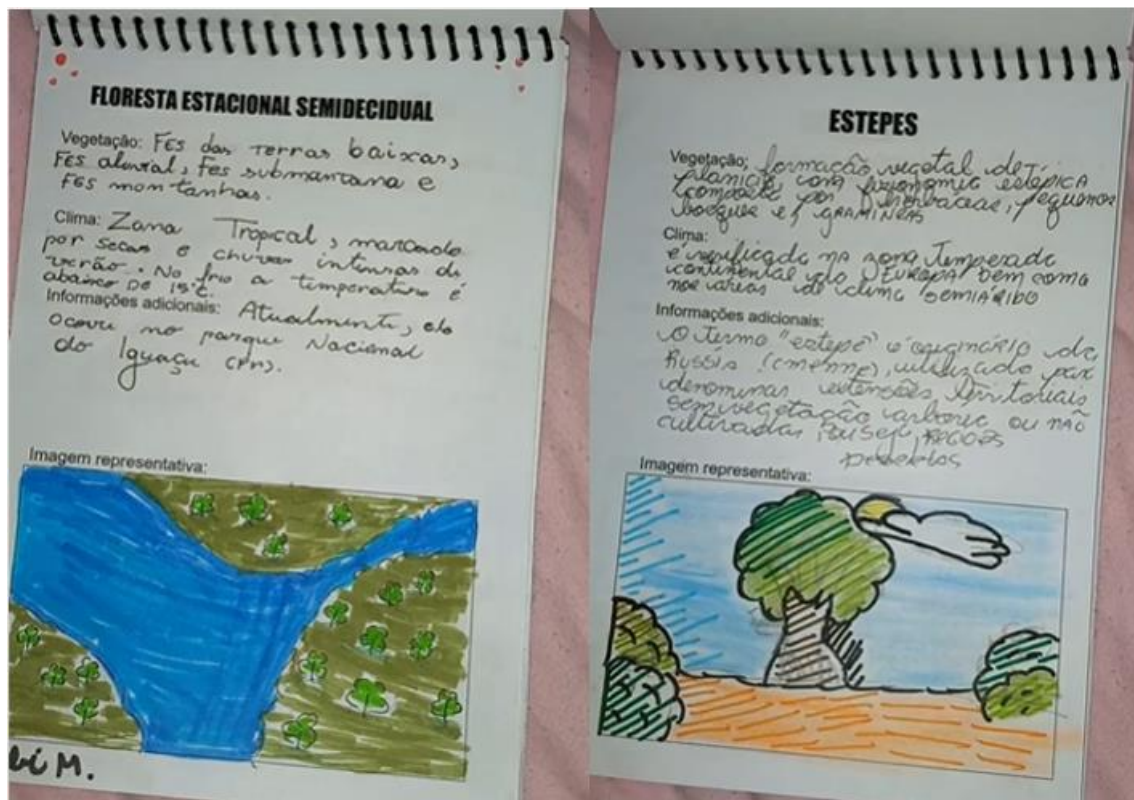 FLORESTA ESTACIONAL SEMIDECIDUAL
Vegetação: FES das terras baixas,
FES aluvial, FES submontana e
FES montanhas.
Clima: Zona Tropical, marcado
por secas e chuvas intensas de
verão. No frio a temperatura é
abaixo DE 15°C.
Informações adicionais: Atualmente, ela
ocorri no parque Nacional
do Iguaçu (PN).
Imagem representativa:
M.
ESTEPES
Vegetação: formação vegetal de
planicie com estépica
composta por herbáceas, pequenos
bosques e GRAMINEAS
Clima:
é verificado na zona Temperada
continental da EUROPA bem como
nas áreas de clima SEMIÁRIDO
Informações adicionais:
O termo "estepe" é originário da
Russia, utilizado par
denominar extensões territoriais
sem vegetação ou não
cultivadas, ou seja,
Imagem representativa: